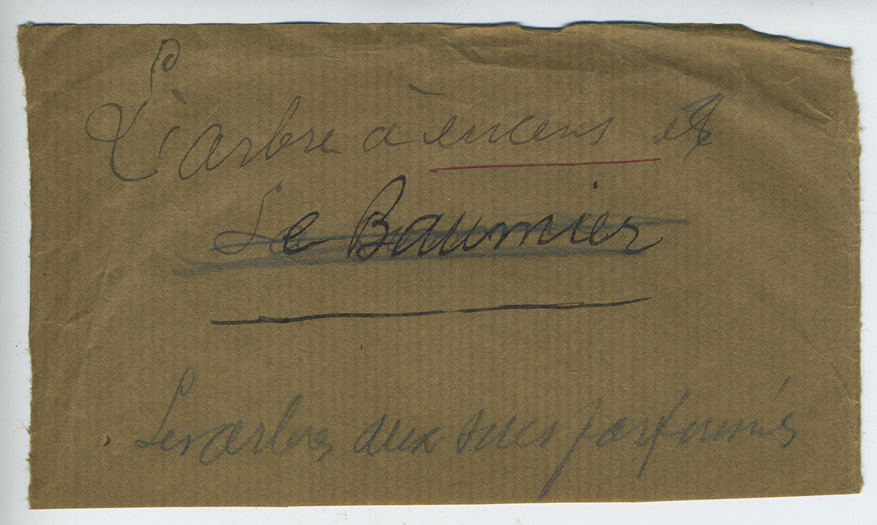 L'arbre à encens et
Le Baumier
Les arbres aux sucs parfumés